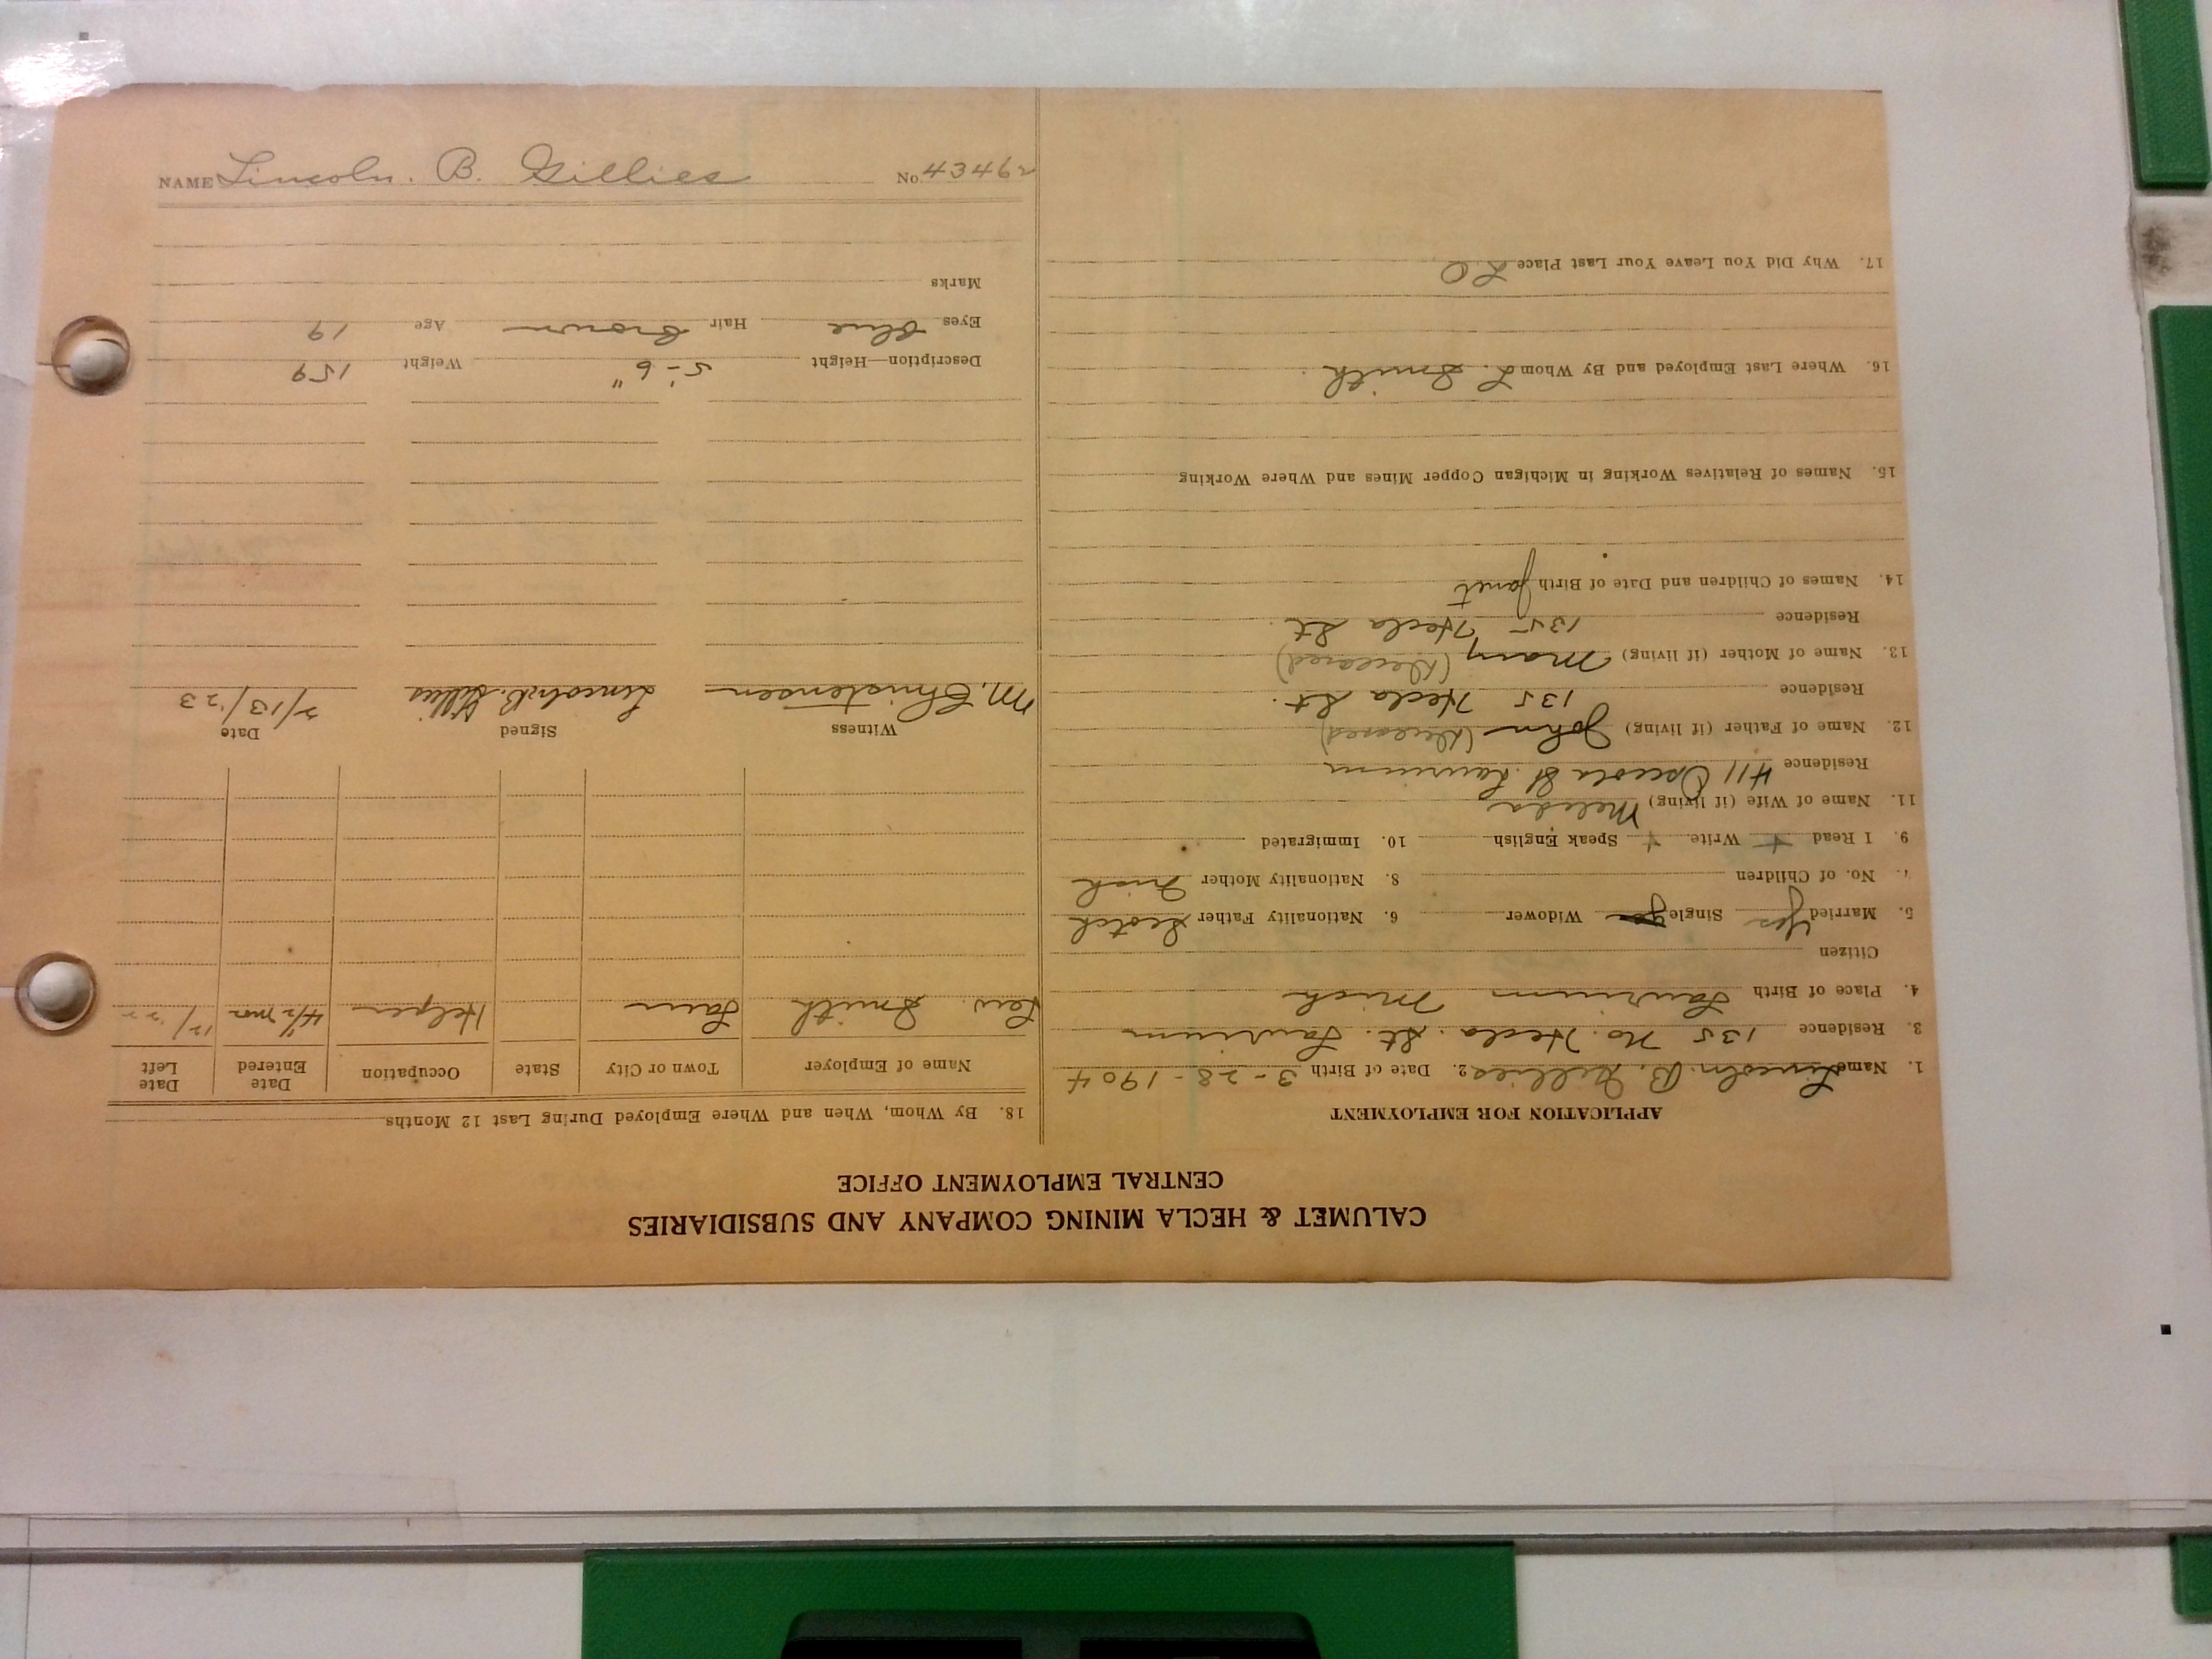 CALUMET & HECLA MINING COMPANY AND SUBSIDIARIES
CENTRAL EMPLOYMENT OFFICE
APPLICATION FOR EMPLOYMENT
1. Name Lincoln B. Gillies 2. Date of Birth 3-28-1904
3. Residence 135 No. Hecla St. Laurium
4. Place of Birth Laurium Mich
Citizen
5. Married Yes Single Widower 6. Nationality Father Scotch
7. No. of Children 8. Nationality Mother Irish
9. I Read + Write + Speak English 10. Immigrated
11. Name of Wife (if living) Melinda
Residence 411 Osceola St. Laurium
12. Name of Father (if living) John (Deceased)
Residence 135 Hecla St.
13. Name of Mother (if living) Mary (Deceased)
Residence 135 Hecla St.
14. Names of Children and Date of Birth Janet
15. Names of Relatives Working in Michigan Copper Mines and Where Working
16. Where Last Employed and By Whom L. Smith
17. Why Did You Leave Your Last Place L.O
18. By Whom, When and Where Employed During Last 12 Months
Name of Employer Town or City State Occupation Date Entered Date Left
Lew. Smith Laur Helper 4 1/2 mos 12/22
Witness Signed Date
M. Christensen Lincoln B. Gillies 2/13/23
Description—Height 5'-6" Weight 159
Eyes Blue Hair Brown Age 19
Marks
NAME Lincoln. B. Gillies No. 43462